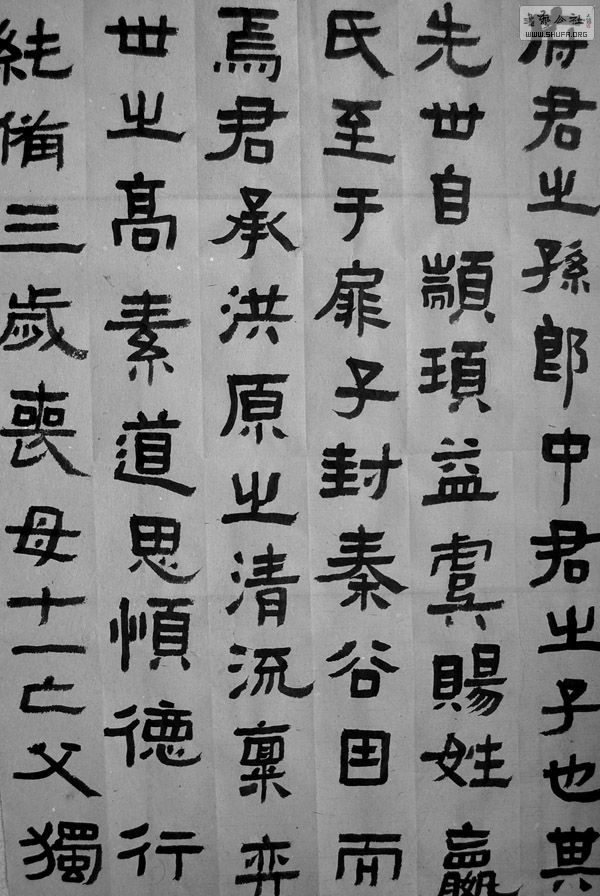 君之孫郎中君之子也其
先世自顓頊益虞賜姓嬴
氏至于扉子封秦谷因而
焉君承洪原之清流稟弈
世之高素道思慎德行
純備三歲喪母十一亡父獨
公社
WWW.SHUFA.ORG